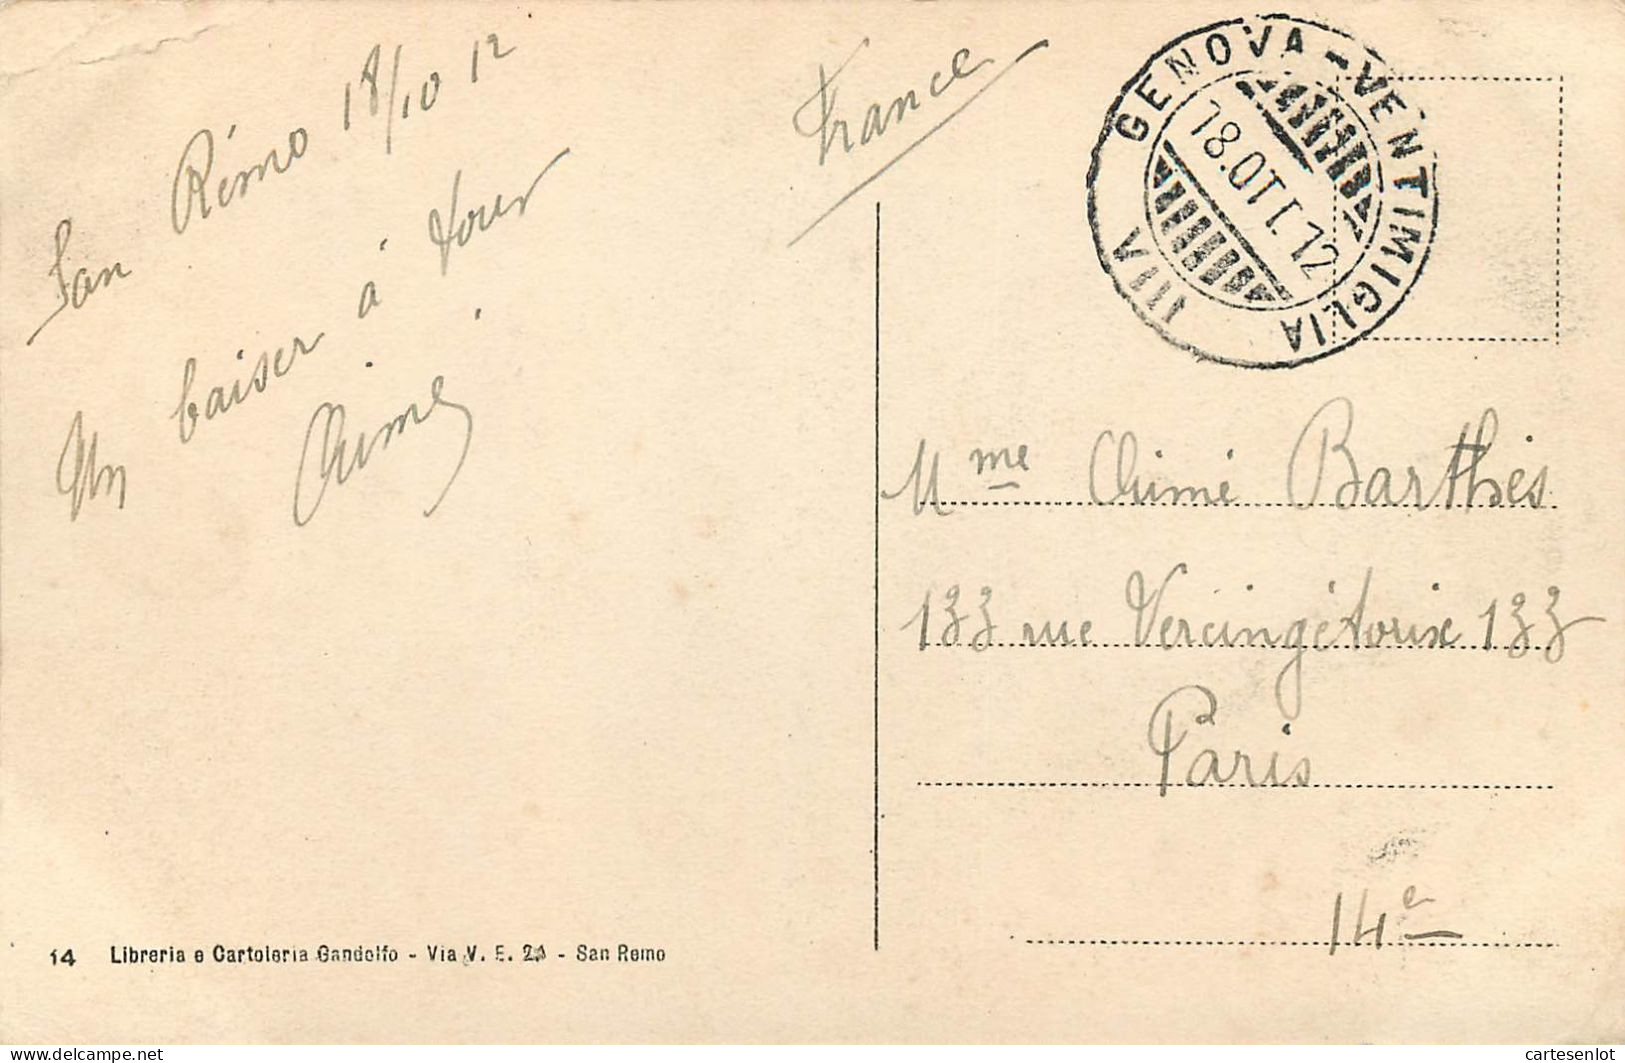 San Rémo 18/10 12
Un baiser à tous
Aimé
France
GENOVA - VENTIMIGLIA
18.OTT.12
VIII
Mme Aimé Barthès
133 rue Vercingétorix 133
Paris
14e
14 Libreria e Cartoleria Gandolfo - Via V. E. - San Remo
cartesenlot